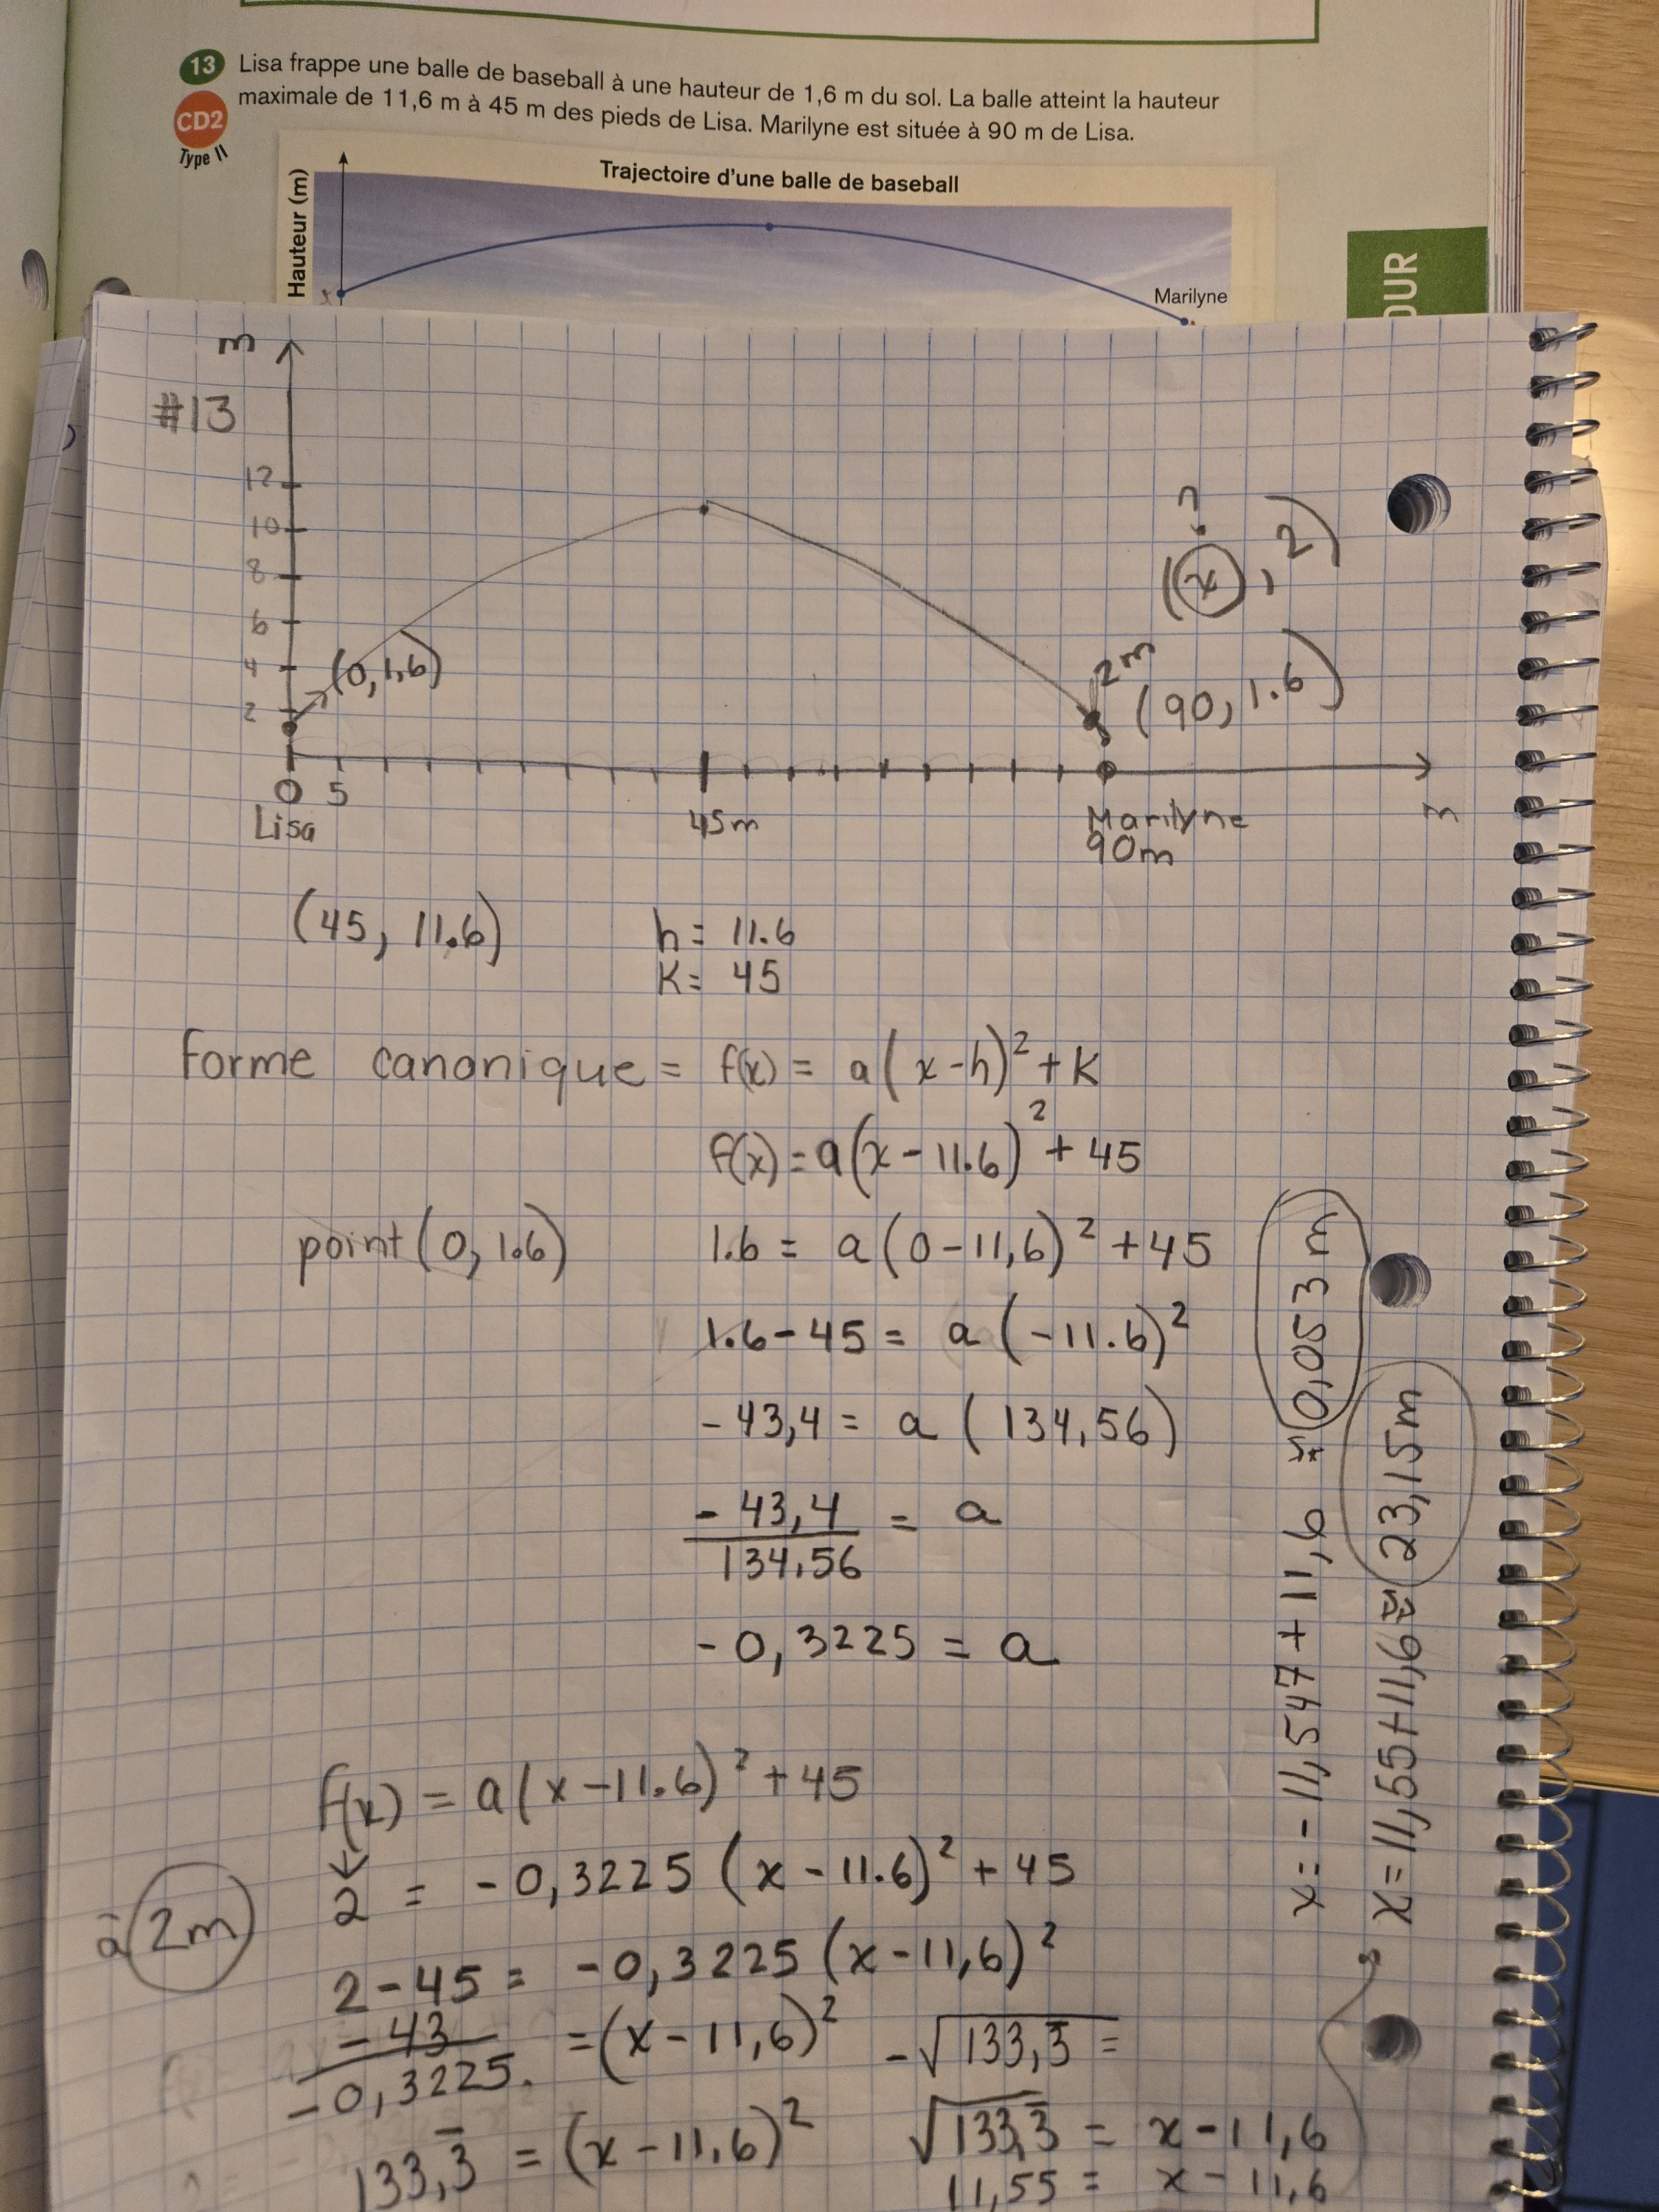 13 Lisa frappe une balle de baseball à une hauteur de 1,6 m du sol. La balle atteint la hauteur
CD2 maximale de 11,6 m à 45 m des pieds de Lisa. Marilyne est située à 90 m de Lisa.
Type II
Trajectoire d'une balle de baseball
Hauteur (m)
Marilyne
OUR
m
#13
12
10
8
6
4
2
(0,1,6)
?
(x, 2)
2m
(90, 1.6)
0 5
Lisa
45m
Marilyne
90m
(45, 11.6)
h= 11.6
K= 45
forme cananique = f(x) = a(x-h)²+K
f(x)=a(x-11.6)²+45
point(0, 1.6)
1.6 = a(0-11,6)²+45
1.6-45 = a(-11.6)²
-43,4 = a (134,56)
-43,4 / 134.56 = a
-0,3225 = a
f(x) = a(x-11.6)²+45
à 2m
2 = -0,3225 (x-11.6)²+45
2-45 = -0,3225(x-11,6)²
-43 / -0,3225. =(x-11,6)²
133,3̅ = (x-11.6)²
-√133,3 =
√133,3̅ = x-11,6
11,55 = x-11,6
x= -11,547+11,6 ≈ 0,053 m
x=11,55+11,6≈ 23,15m